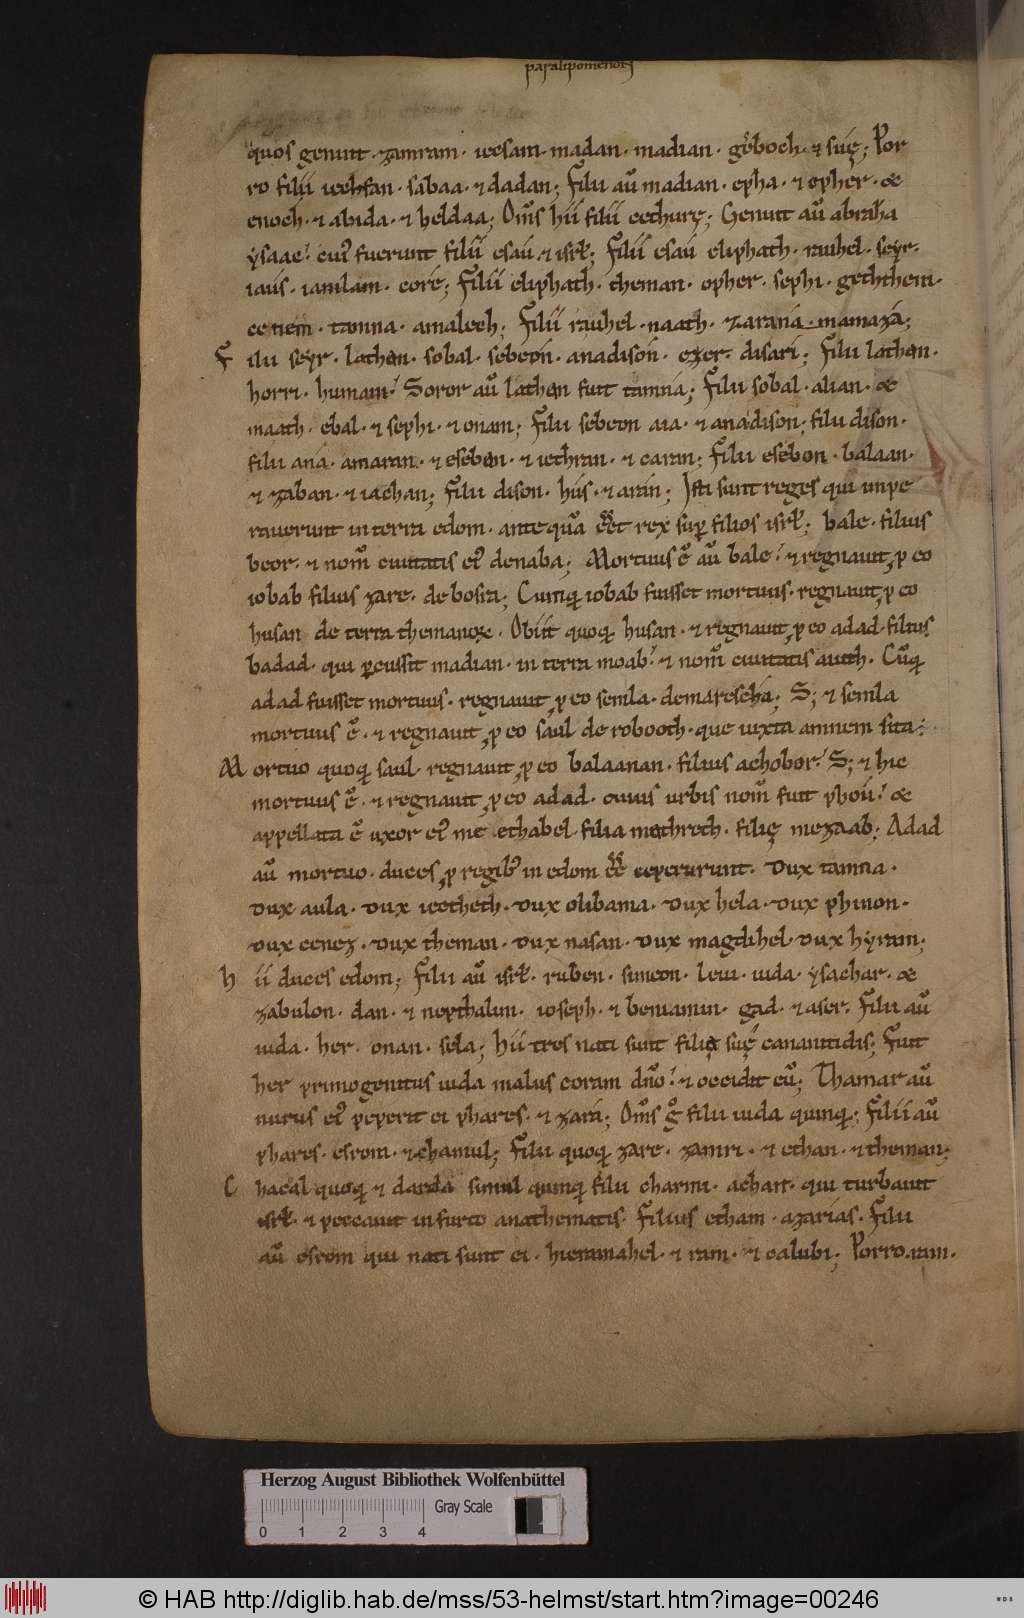 paralipomenon
quos genuit · zamram · iecsam · madan · madian · gesboch · & sue; Por
ro filii iechsan · sabaa · & dadan; Filii aū madian · epha · & opher · &
enoch · & abida · & heldaa; Om̄s hii filii cethurę; Genuit aū abraha
ysaac · cui' fuerunt filii esau · & isrł; Filii esau eliphath · rauhel · seyr ·
iaus · iamlam · core; Filii eliphath · theman · opher · sephi · geththem ·
cenem · tamna · amalech; Filii rauhel · naath · zarana · mamaza;
Filii seyr · lathan · sobal · sebeon · anadison · ezer · disari; Filii lathan ·
horri · humam · Soror aū lathan fuit tamna; Filii sobal · alian · &
maath · ebal · & sephi · & onam; Filii sebeon aia · & anadison; filii dison ·
filii ana · amaran · & eseban · & iethran · & caran; Filii esebon · balaan ·
& zaban · & iachan; Filii dison · hus · & aran; Isti sunt reges qui impe
raverunt in terra edom · ante quā eēt rex sup filios isrł; bale · filius
beor · & nom̄ civitatis ei' denaba; Mortuus ē aū bale · & regnavit p eo
iobab filius zare · de bosra; Cumq iobab fuisset mortuus · regnavit p eo
husan de terra themanoꝝ · Obiit quoq husan · & regnavit p eo adad · filius
badad · qui pcussit madian · in terra moab · & nom̄ civitatis auith · Cūq
adad fuisset mortuus · regnavit p eo semla · demarescha; S; & semla
mortuus ē · & regnavit p eo saul de robooth · que iuxta amnem sita ·
Mortuo quoq saul · regnavit p eo balaanan · filius achobor · S; & hic
mortuus ē · & regnavit p eo adad · cuius urbis nom̄ fuit phou · &
appellata ē uxor ei' me ethabel filia mathrech · filię mezaab; Adad
aū mortuo · duces p regib' in edom eē ceperunt · Dux tamna ·
dux aula · dux iectheth · dux olibama · dux hela · dux phinon ·
dux cenez · dux theman · dux nasan · dux magdihel · dux hyram;
hii duces edom; Filii aū isrł · ruben · simeon · levi · iuda · ysachar · &
zabulon · dan · & nepthalim · ioseph · & beniamin · gad · & aser · Filii aū
iuda · her · onan · sela; hii tres nati sunt filia suę cananitidis; Fuit
her primogenitus iuda malus coram dn̄o · & occidit eū; Thamar aū
nurus ei' peperit ei phares · & zara; Om̄s g° filii iuda quinq; Filii aū
phares · esrom · & chamul; Filii quoq zare · zamri · & ethan · & theman;
Chacal quoq & darda simul quinq filii charmi · achar · qui turbavit
isrł · & peccavit in furto anathematis · Filius etham · azarias · Filii
aū esrom qui nati sunt ei · hieramahel · & ram · & calubi; Porro · ram ·
Herzog August Bibliothek Wolfenbüttel
Gray Scale
0 1 2 3 4
© HAB http://diglib.hab.de/mss/53-helmst/start.htm?image=00246